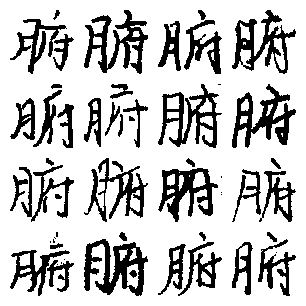 腑腑腑腑
腑腑腑腑
腑腑腑腑
腑腑腑腑